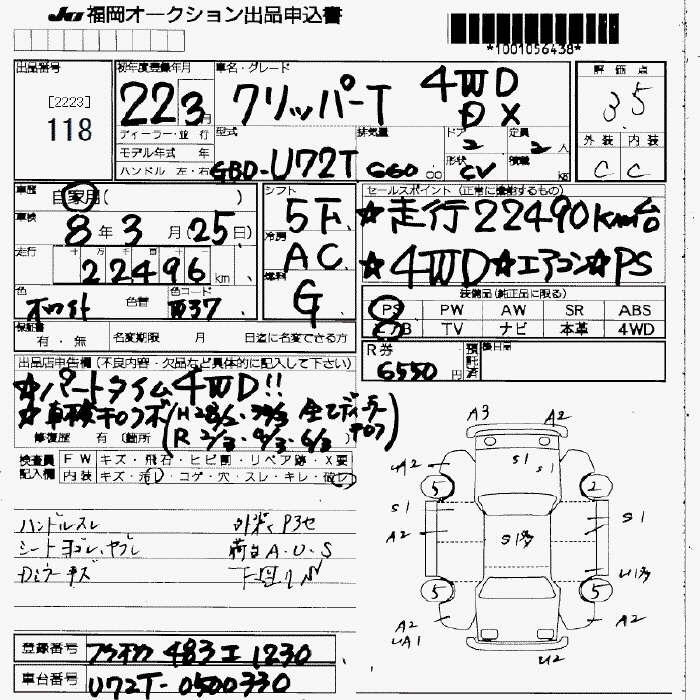 JU 福岡オークション出品申込書
*1001056438*
出品番号
[2223]
118
初年度登録年月
22年3月
ディーラー・並行
モデル年式 年
ハンドル 左・右
車名・グレード
クリッパーT 4WD
DX
型式
GBD-U72T
排気量
660 cc
ドア
2
形状
CV
定員
2人
積載
kg
評価点
3.5
外装 内装
C C
車歴
自家用( )
車検
8年3月(25日)
走行
22496 km
色
ホワイト 色替
色コード
シフト
5F
冷房
AC
燃料
G
セールスポイント (正常に機能するもの)
☆走行22490km台
☆4WD☆エアコン☆PS
装備品(純正品に限る)
PS PW AW SR ABS
エアB TV ナビ 本革 4WD
保証書
有・無
名変期限 月 日迄に名変できる方
R券
6550円
預託済
後日
出品店申告欄(不良内容・欠品など具体的に記入して下さい)
☆パートタイム4WD!!
修復歴 有 (箇所
検査員記入欄
FW キズ・飛石・ヒビ割・リペア跡・X要
内装 キズ・汚レ・コゲ・穴・スレ・キレ・破レ
ハンドルスレ
シートヨゴレ、ヤブレ
荷台A.U.S
下廻りサビ
A3 A2
S1 S1
UA2 A2
5 2
S1 S1
A2
S1多
U1多
5 5
A2 A2
UA1
U2
登録番号 483 エ 1230
車台番号 U72T-0500330